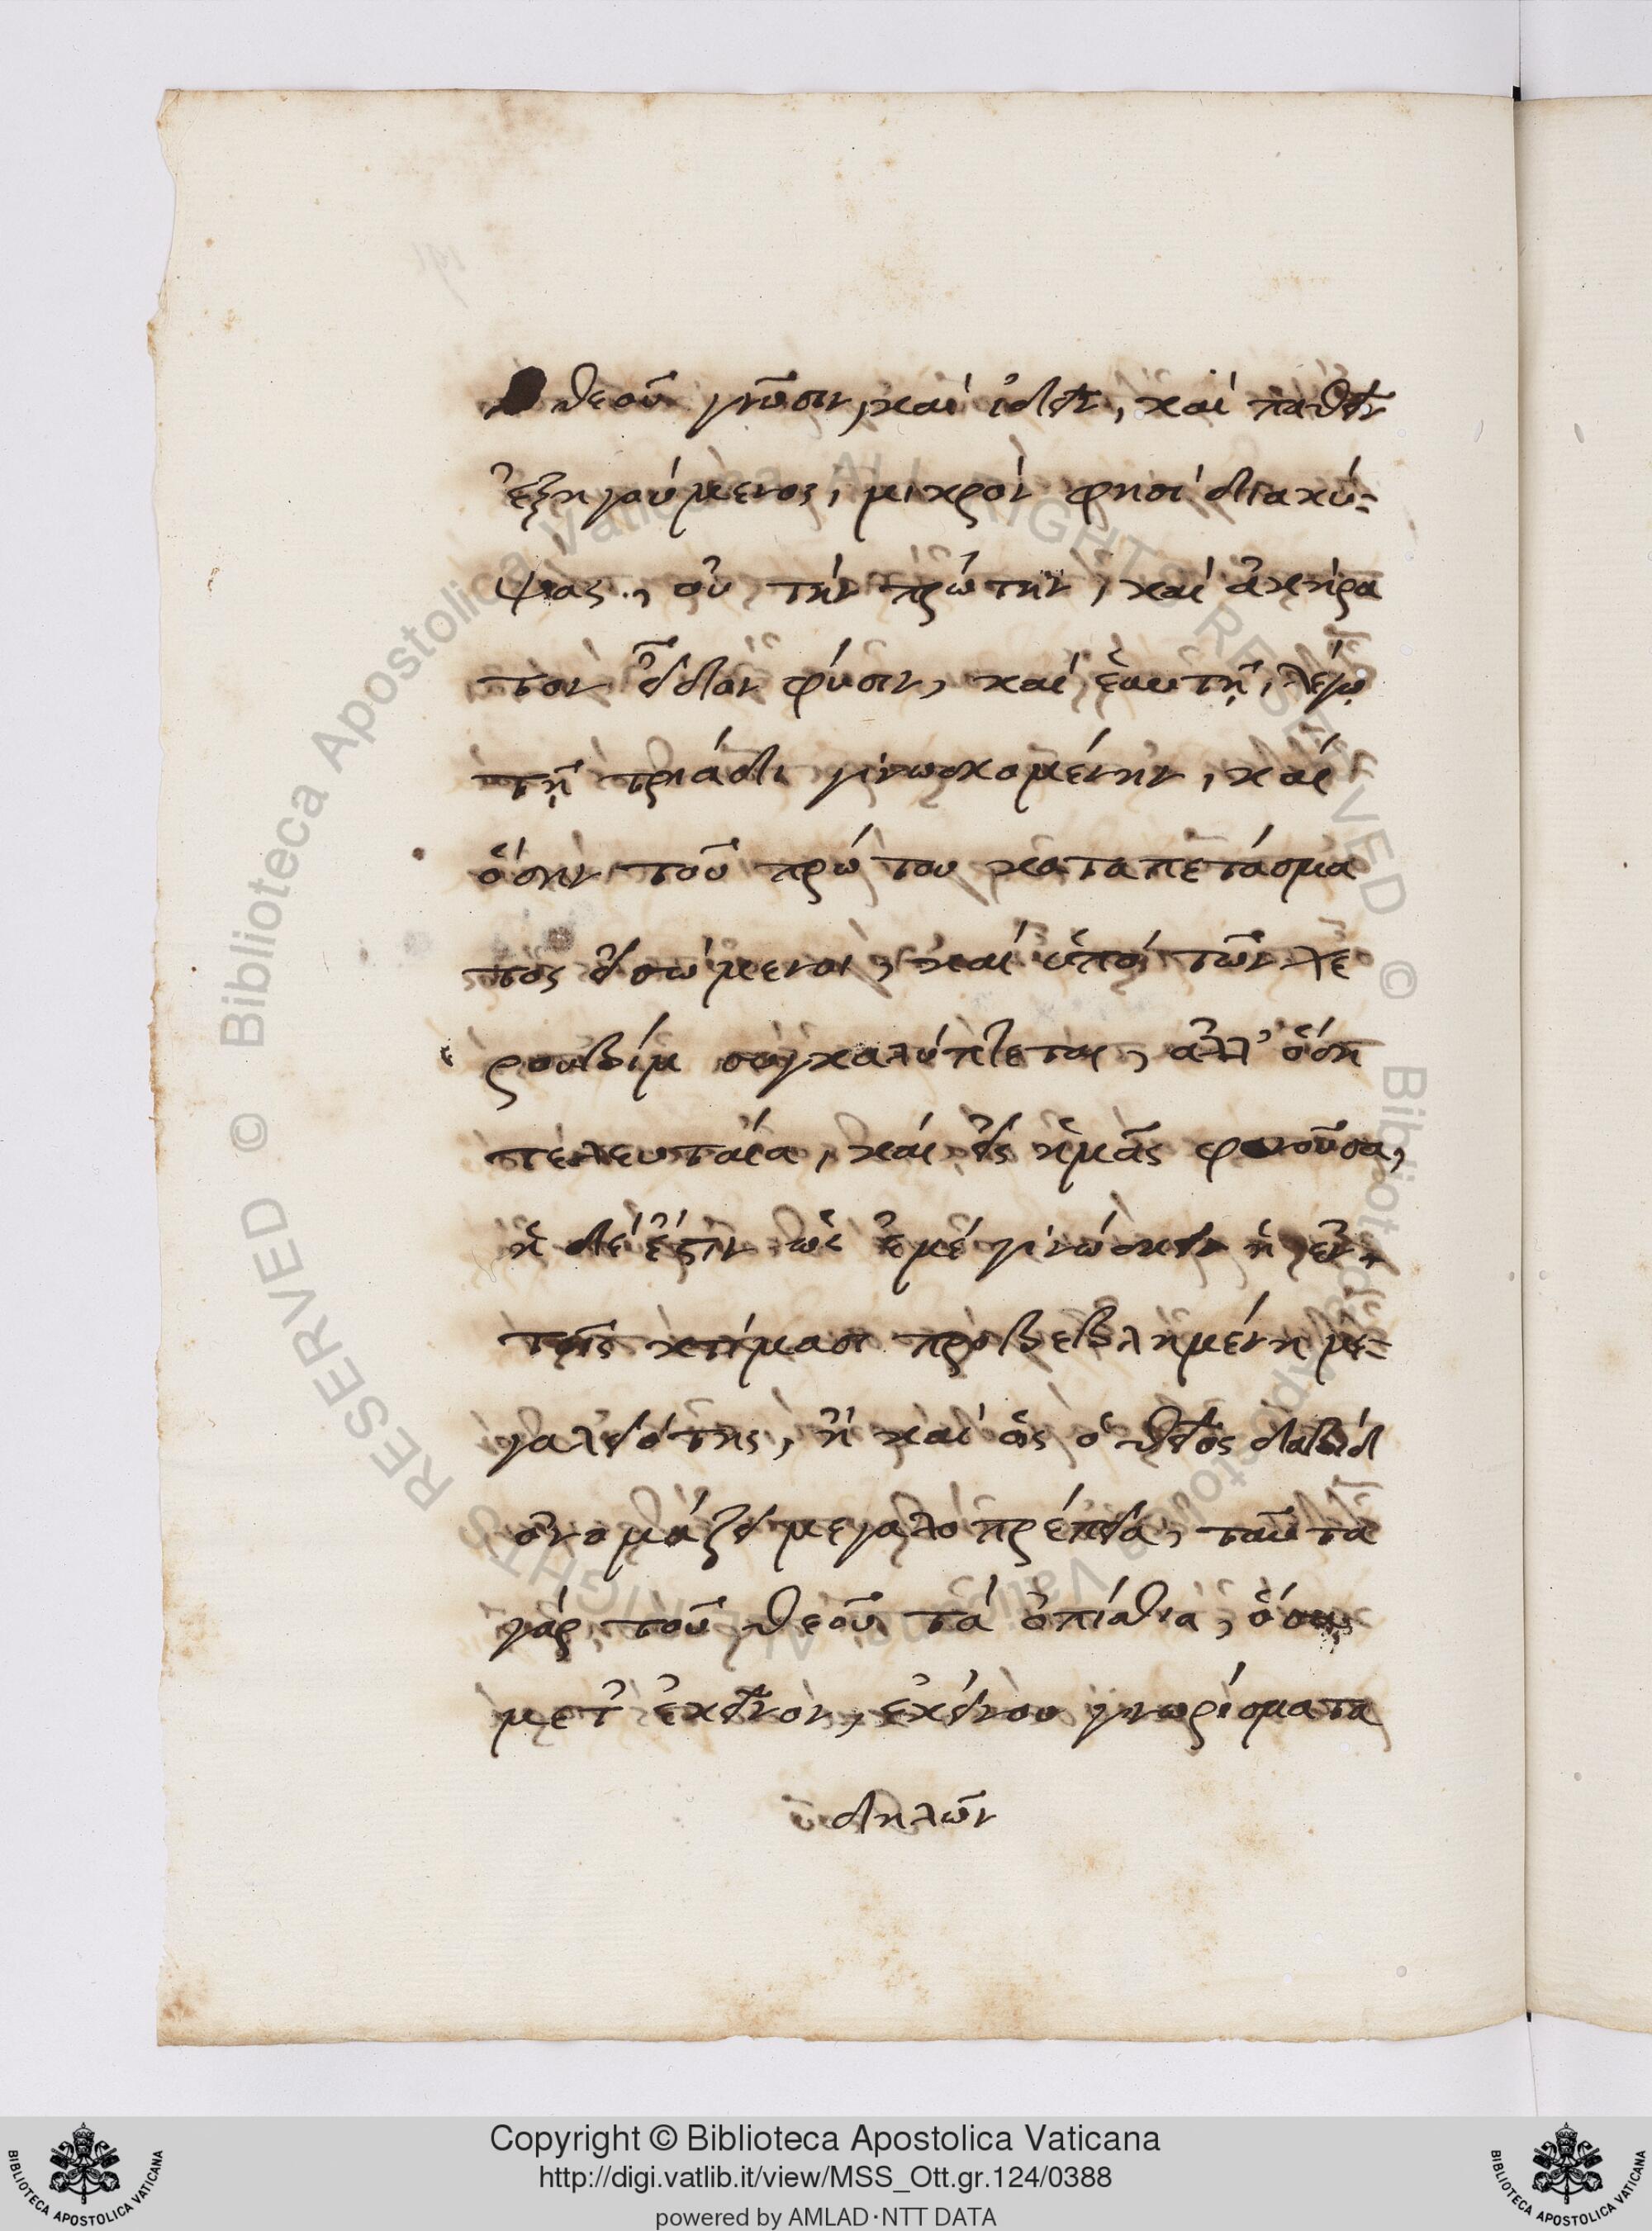 θεοῦ γνῶσιν, καὶ ἰδεῖν, καὶ παθεῖν
ἐξηγούμενος, μικρόν φησι διακύ-
ψας, οὐ τὴν πρώτην, καὶ ἀκήρα
τον εἶδον φύσιν, καὶ ἑαυτῇ, λέγω
τῇ τριάδι γινωσκομένην, καὶ
ὅσην τοῦ πρώτου καταπετάσμα
τος εἴσω μένει, καὶ ὑπὸ τῶν χε
ρουβὶμ συγκαλύπτεται, ἀλλ' ὅση
τελευταία, καὶ εἰς ἡμᾶς φθάνουσα,
ἡ δέ ἐστιν ὡς ἐμὲ γινώσκειν ἡ ἐν
τοῖς κτίμασι προβεβλημένη με-
γαλειότης, ἢ καὶ ὡς ὁ θεῖος δαβὶδ
ὀνομάζει μεγαλοπρέπεια, ταῦτα
γὰρ τοῦ θεοῦ τὰ ὀπίσθια, ὅσα
μετ' ἐκεῖνον, ἐκείνου γνωρίσματα
δηλῶν
Copyright © Biblioteca Apostolica Vaticana
http://digi.vatlib.it/view/MSS_Ott.gr.124/0388
powered by AMLAD·NTT DATA
BIBLIOTECA APOSTOLICA VATICANA
BIBLIOTECA APOSTOLICA VATICANA